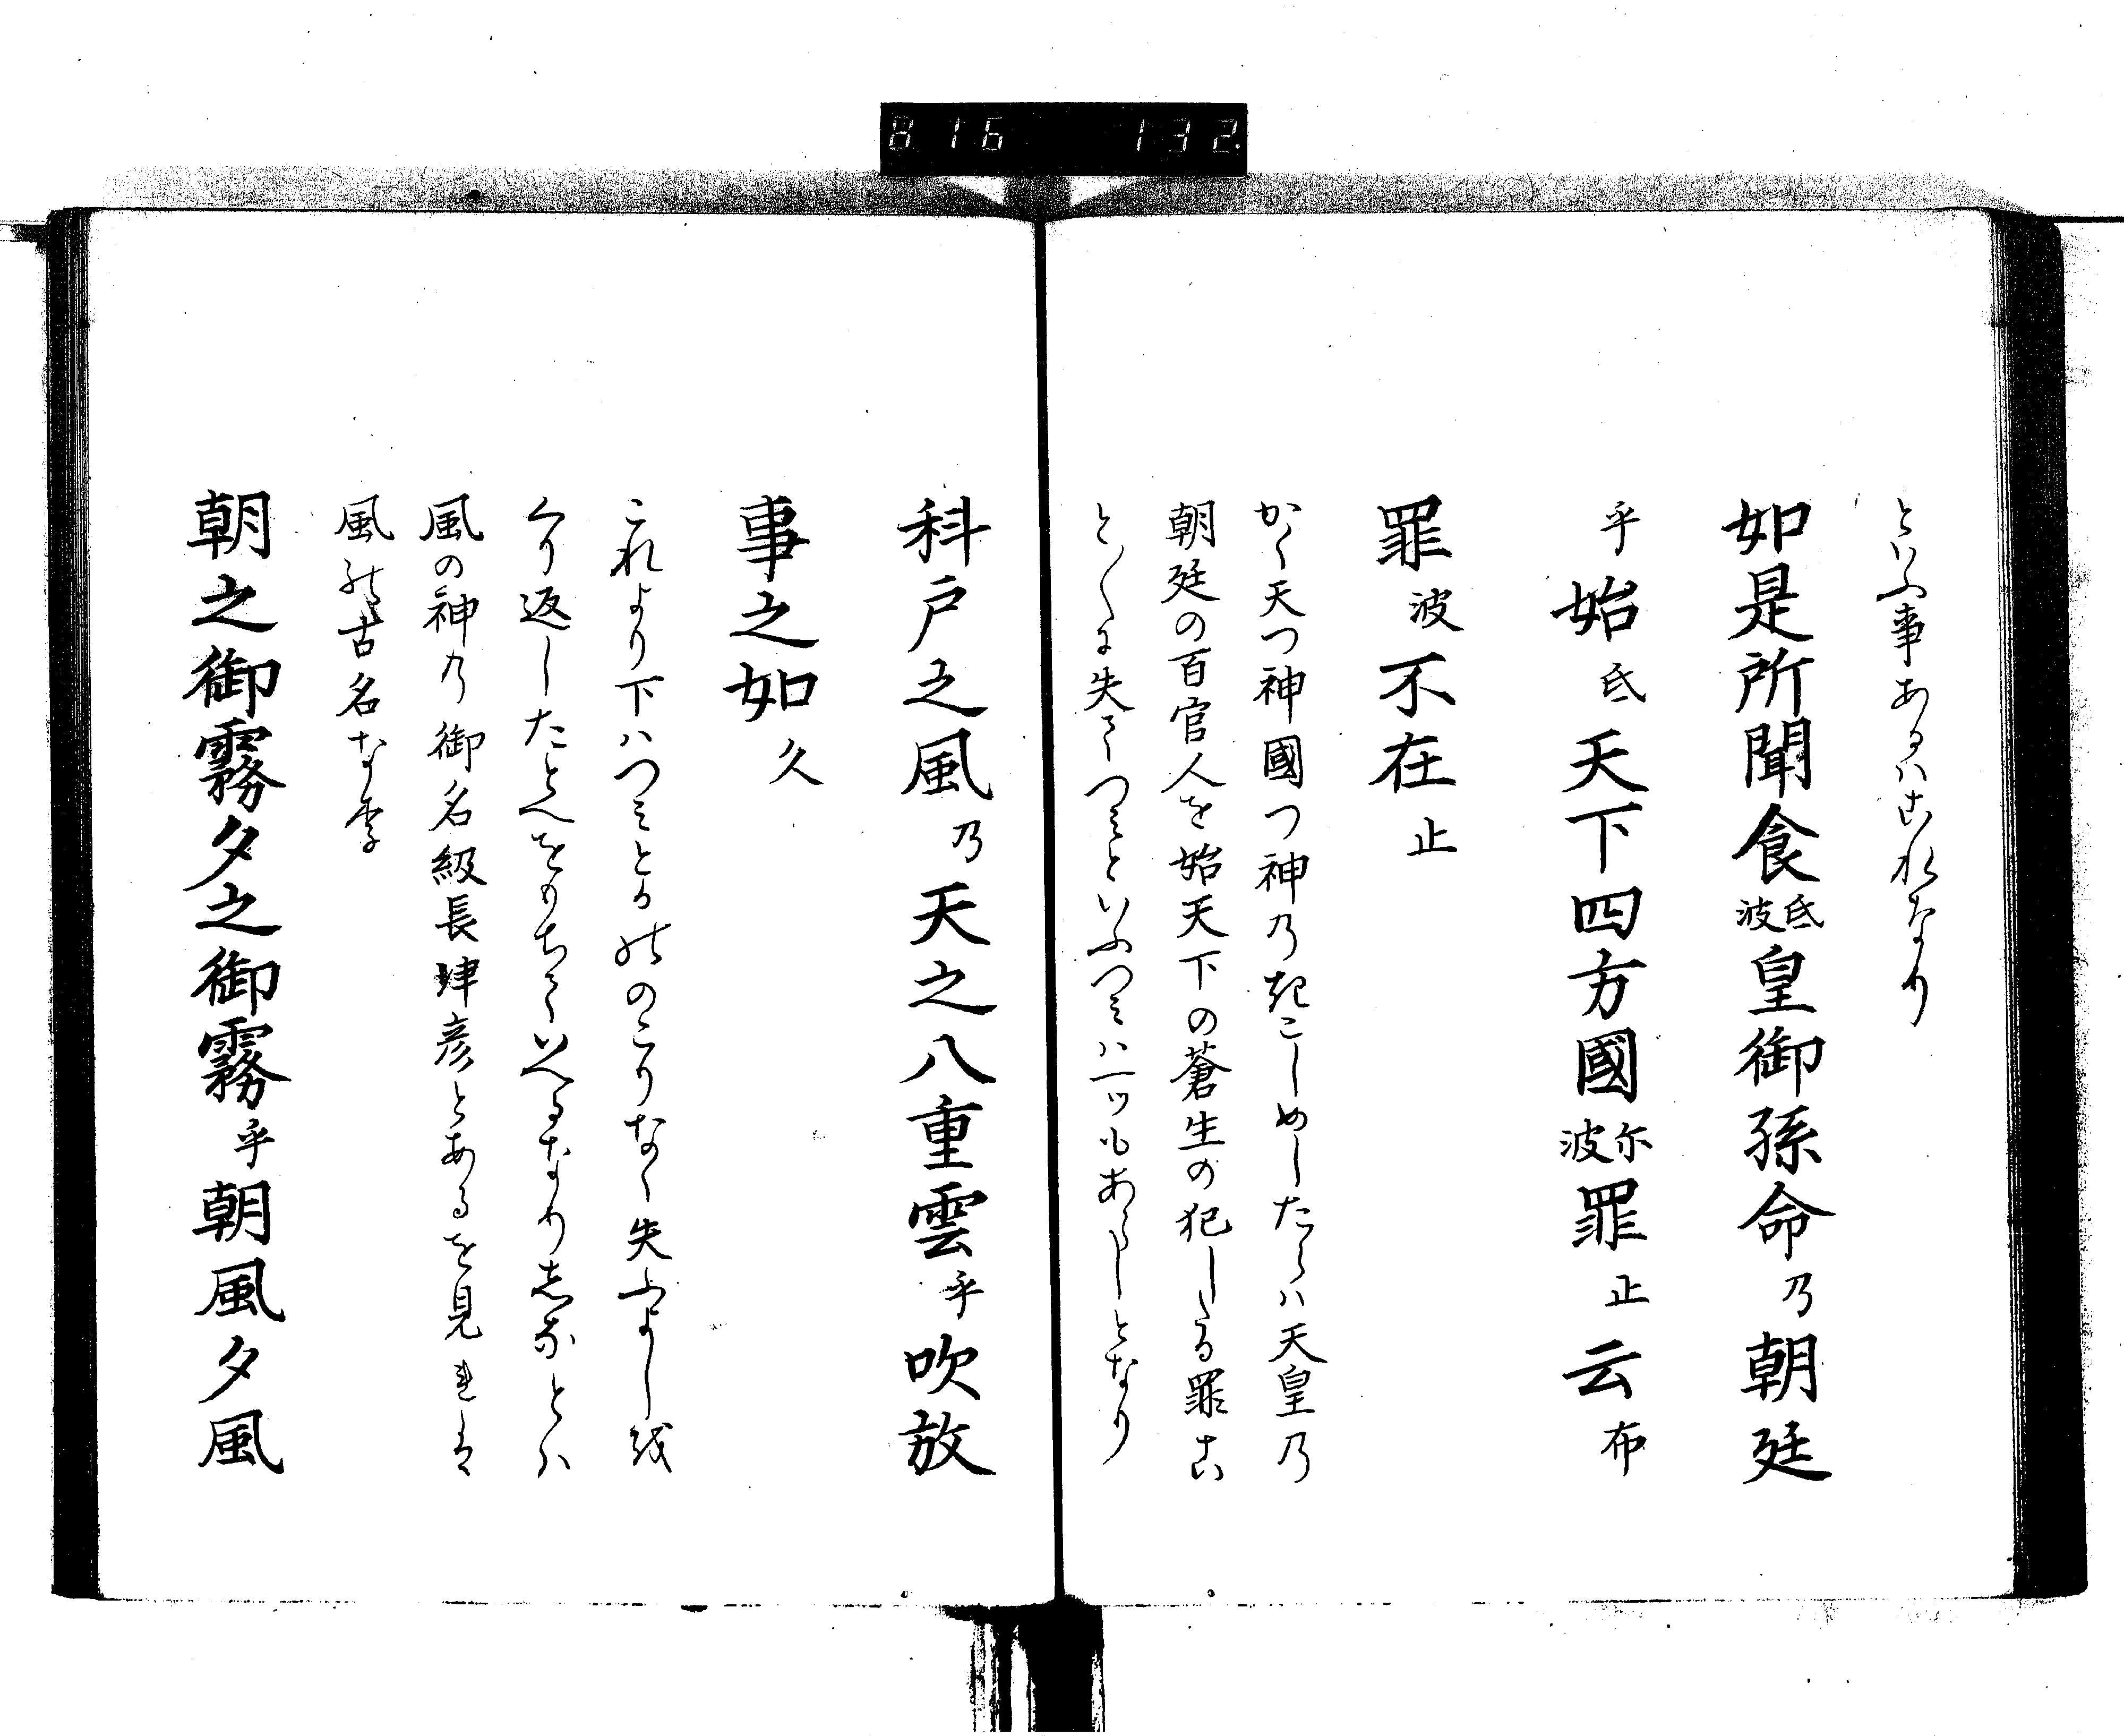 816 132.
といふ事あるはこれなり
如是所聞食氐波皇御孫命乃朝廷
乎始氐天下四方國尓波罪止云布
罪波不在止
かく天つ神國つ神乃きこしめしたらハ天皇乃
朝廷の百官人を始天下の蒼生の犯したる罪こ
と〱に失てつミといふつミハ一ッもあらしとなり
科戸之風乃天之八重雲乎吹放
事之如久
これより下ハつミとかのこりなく失ふよし
くり返したとへをもちていへるなり志なとハ
風の神乃御名級長津彦とあるを見れは
風の古名なり
朝之御霧夕之御霧乎朝風夕風